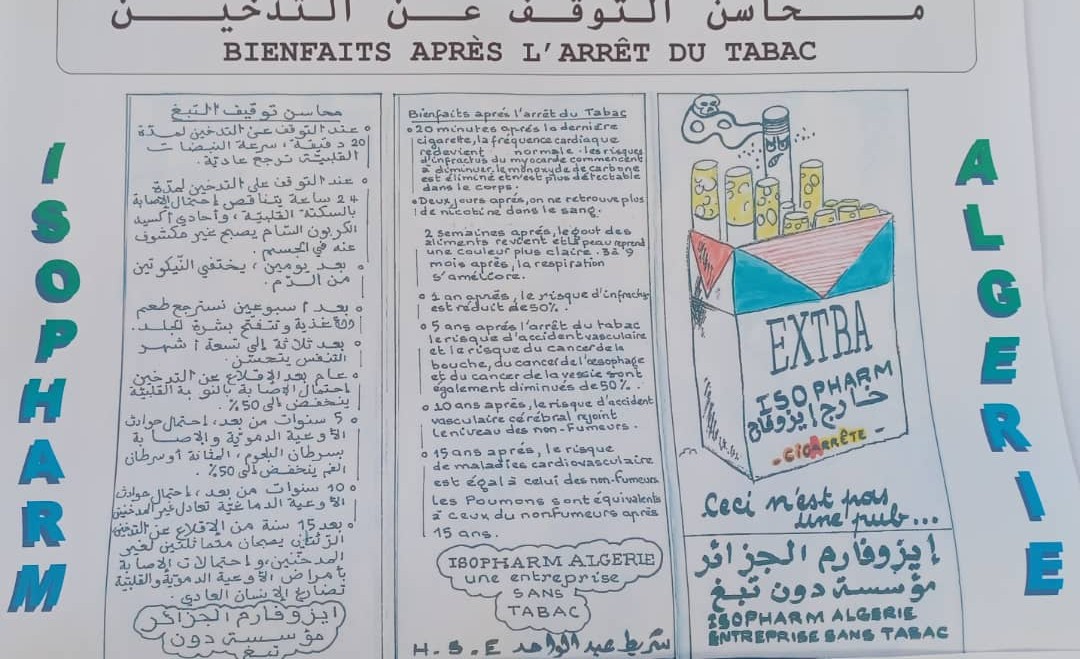 محاسن التوقف عن التدخين
BIENFAITS APRÈS L'ARRÊT DU TABAC
ISOPHARM
محاسن توقيف التبغ
عند التوقف عن التدخين لمدة
20 دقيقة، سرعة النبضات
القلبية ترجع عادية.
عند التوقف على التدخين لمدة
24 ساعة يتناقص إحتمال الإصابة
بالسكتة القلبية، وأحادي أكسيد
الكربون السام يصبح غير مكشوف
عنه في الجسم
بعد يومين، يختفي النيكوتين
من الدم.
بعد أسبوعين نسترجع طعم
وتتفتح بشرة الجلد.
بعد ثلاثة إلى تسعة أشهر
التنفس يتحسن.
عام بعد الإقلاع عن التدخين
إحتمال الإصابة بالنوبة القلبية
ينخفض إلى 50%.
5 سنوات من بعد، إحتمال حوادث
الأوعية الدموية والإصابة
بسرطان البلعوم، المثانة أو سرطان
الفم ينخفض إلى 50%
10 سنوات من بعد، إحتمال حوادث
الأوعية الدماغية تعادل غير المدخنين
بعد 15 سنة من الإقلاع عن التدخين
الرئتان يصبحان مماثلتين لغير
المدخنين، واحتمالات الإصابة
بأمراض الأوعية الدموية والقلبية
الإنسان العادي.
ايزوفارم الجزائر
مؤسسة دون
تبغ
Bienfaits aprés l'arrêt du Tabac
20 minutes aprés la derniére
cigarette, la fréquence cardiaque
redevient normale. les risques
d'infractus du myocarde commencent
à diminuer, le monoxyde de carbone
est éliminé et n'est plus détectable
dans le corps.
Deux jours aprés, on ne retrouve plus
de nicotine dans le sang.
2 semaines aprés, le gout des
aliments revient et la peau reprend
une couleur plus claire. 3 à 9
mois aprés, la respiration
s'améliore.
1 an aprés, le risque d'infractus
est réduit de 50%.
5 ans aprés l'arrêt du tabac
le risque d'accident vasculaire
et le risque du cancer de la
bouche, du cancer de l'œsophage
et du cancer de la vessie sont
également diminués de 50%.
10 ans aprés, le risque d'accident
vasculaire cérébral rejoint
le niveau des non-fumeurs.
15 ans aprés, le risque
de maladies cardiovasculaire
est égal à celui des non-fumeurs
les Poumons sont équivalents
à ceux du non fumeurs aprés
15 ans.
ISOPHARM ALGERIE
une entreprise
SANS
TABAC
H.S.E شريط عبد الواحد
EXTRA
ISOPHARM
خارج ايزوفارم
- CIGARRÊTE -
Ceci n'est pas
une pub...
إيزوفارم الجزائر
مؤسسة دون تبغ
ISOPHARM ALGERIE
ENTREPRISE SANS TABAC
ALGERIE